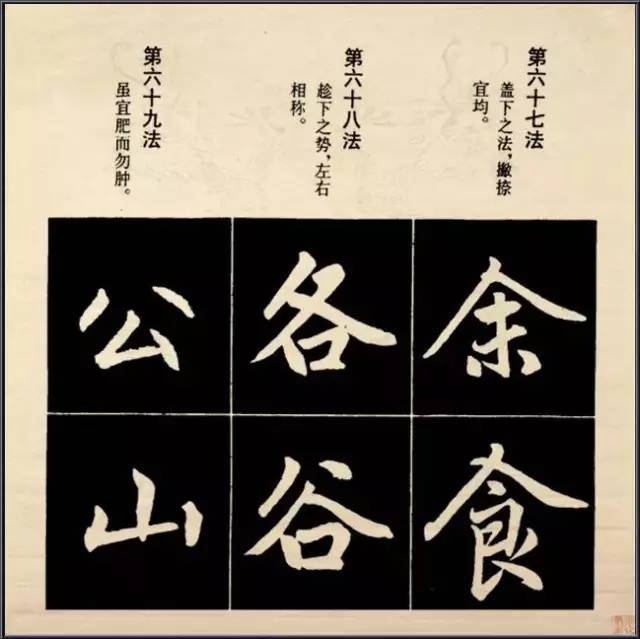 第六十七法
盖下之法，撇捺
宜均。
余
食
第六十八法
趁下之势，左右
相称。
各
谷
第六十九法
虽宜肥而勿肿。
公
山